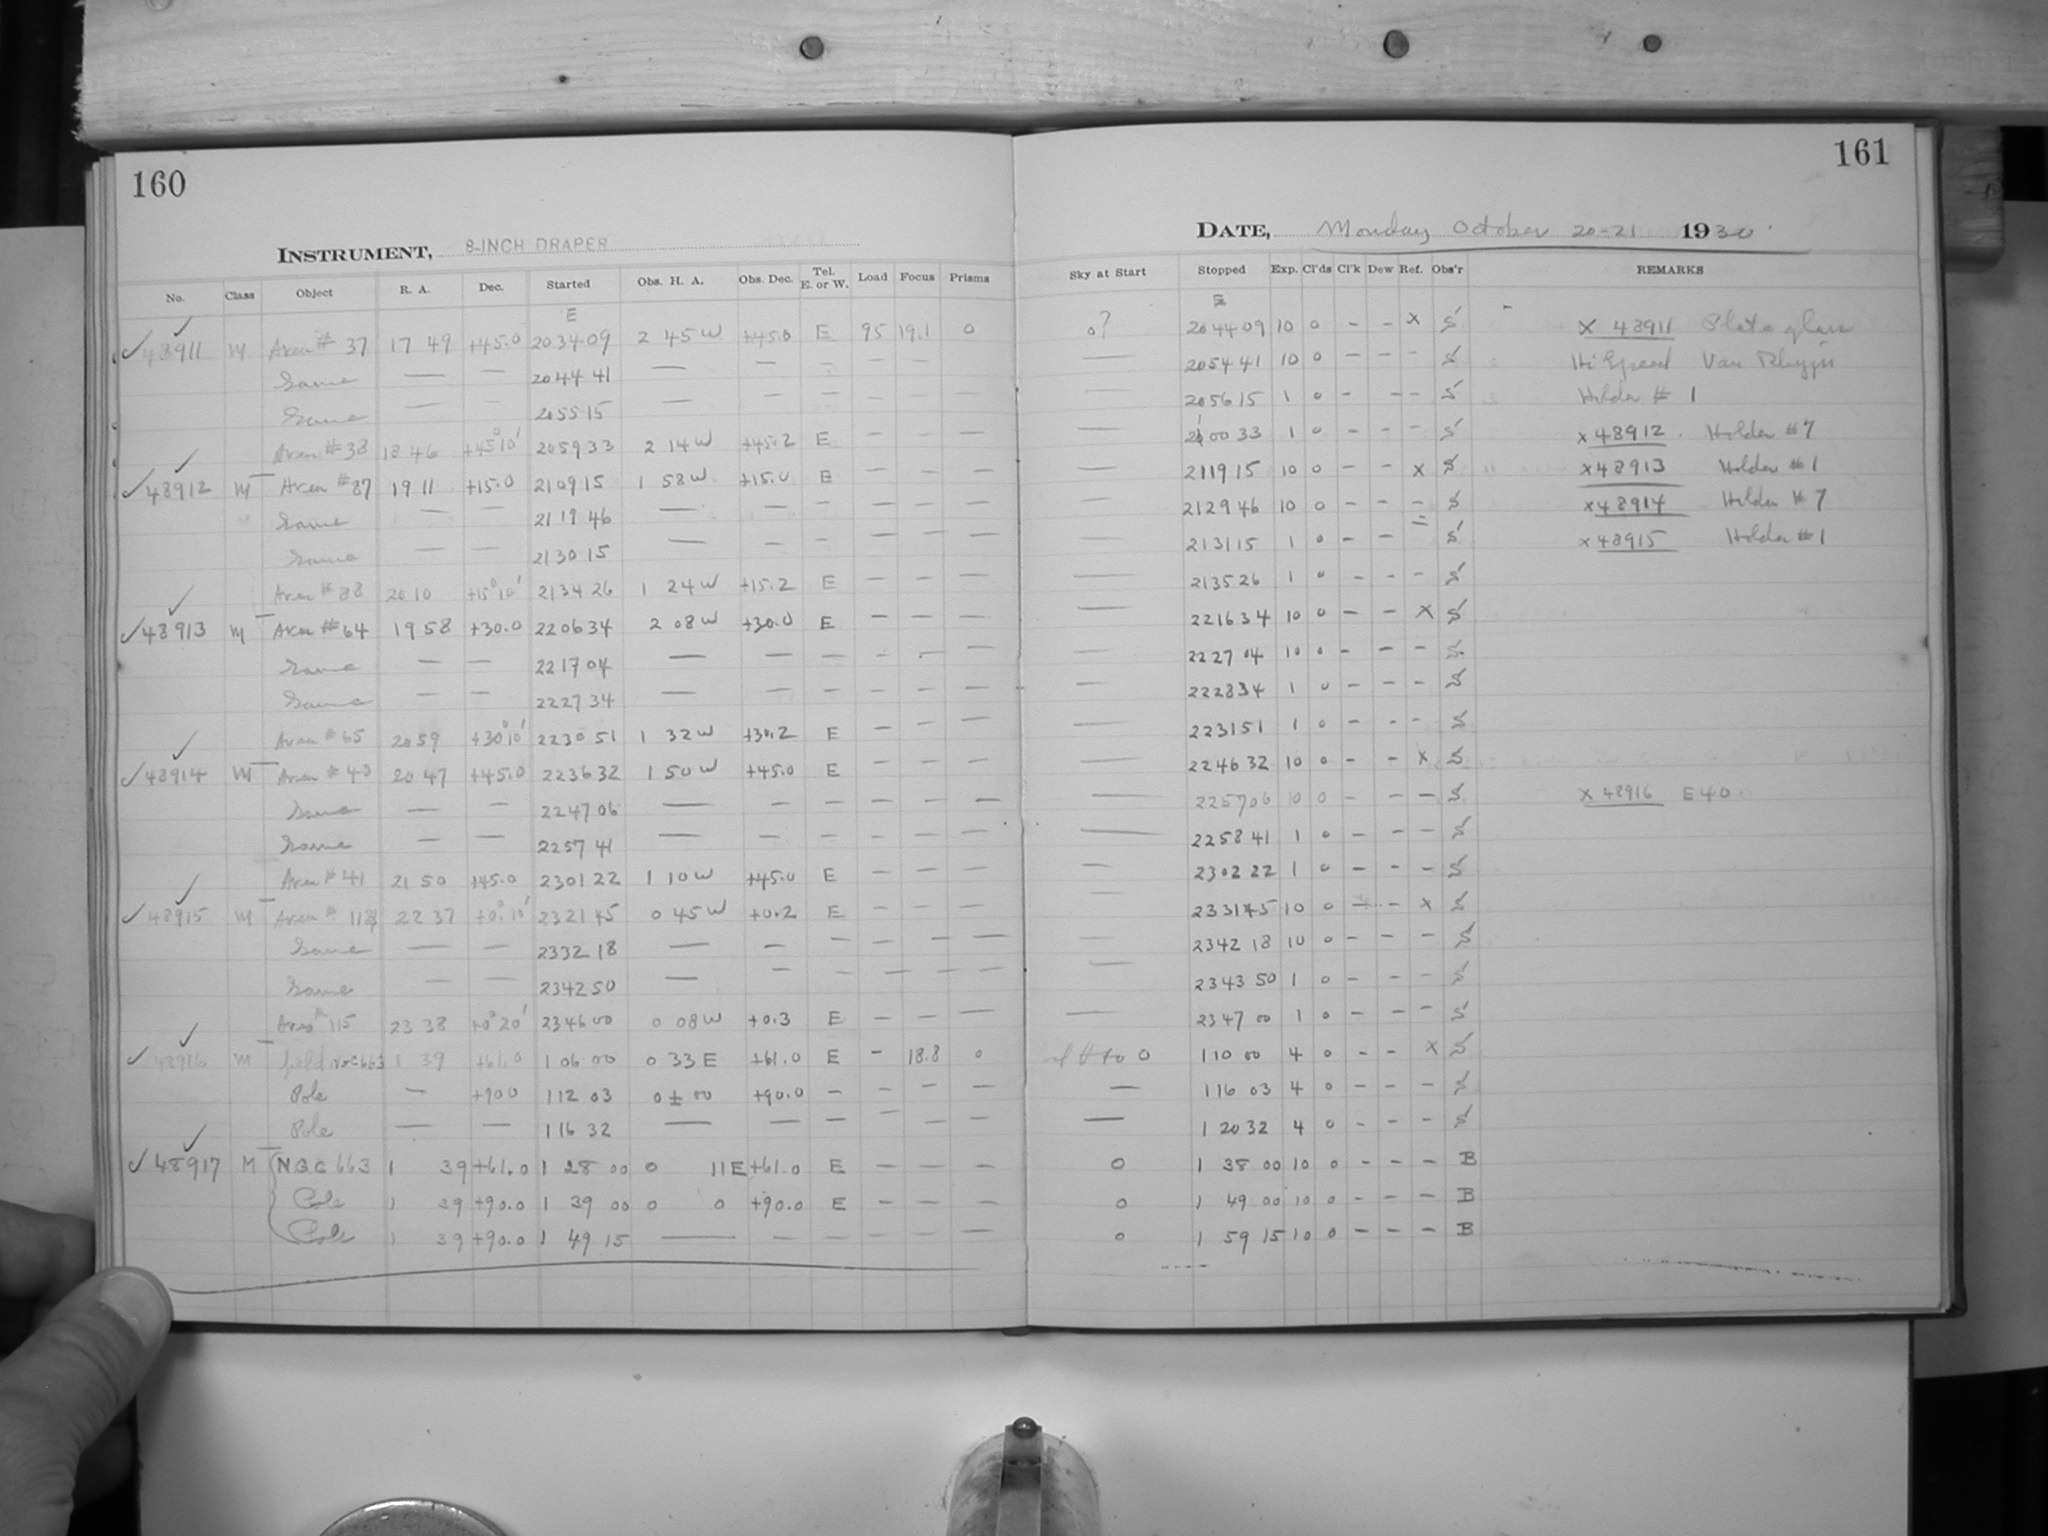 160
INSTRUMENT, 8-INCH DRAPER
No. Class Object R. A. Dec. Started Obs. H. A. Obs. Dec. Tel. E. or W. Load Focus Prisms
E
✓ 48911 M Area # 37 17 49 +45.0 20 34 09 2 45 W +45.0 E 95 19.1 0
Same — — 20 44 41 — — —
Same — — 20 55 15 — — — — — —
Area # 38 18 46 +45°10' 20 59 33 2 14 W +45.2 E — — —
✓ 48912 M Area # 87 19 11 +15.0 21 09 15 1 58 W +15.0 E — — —
Same — — 21 19 46 — — — — — —
Same — — 21 30 15 — — — — — —
Area # 88 20 10 +15°10' 21 34 26 1 24 W +15.2 E — — —
✓ 48913 M Area # 64 19 58 +30.0 22 06 34 2 08 W +30.0 E — — —
Same — — 22 17 04 — — — — — —
Same — — 22 27 34 — — — — — —
Area # 65 20 59 +30°10' 22 30 51 1 32 W +30.2 E — — —
✓ 48914 M Area # 43 20 47 +45.0 22 36 32 1 50 W +45.0 E — — —
Same — — 22 47 06 — — — — — —
Same — — 22 57 41 — — — — — —
Area # 41 21 50 +45.0 23 01 22 1 10 W +45.0 E — — —
✓ 48915 M Area # 22 37 +0°10' 23 21 45 0 45 W +0.2 E — — —
Same — — 23 32 18 — — — — — —
Same — — 23 42 50 — — — — — —
Area # 115 23 38 +0°20' 23 46 00 0 08 W +0.3 E — — —
✓ 48916 M field NGC 663 1 39 +61.0 1 06 00 0 33 E +61.0 E — 18.8 0
Pole — +90.0 1 12 03 0 ± 00 +90.0 — — — —
Pole — — 1 16 32 — — — — — —
✓ 48917 M NGC 663 1 39 +61.0 1 28 00 0 11 E +61.0 E — — —
Pole 1 39 +90.0 1 39 00 0 0 +90.0 E — — —
Pole 1 39 +90.0 1 49 15 — — — — — —
161
DATE, Monday October 20-21 1930
Sky at Start Stopped Exp. Cl'ds Cl'k Dew Ref. Obs'r REMARKS
E
0? 20 44 09 10 0 — — x S x 48911 Plate glass
— 20 54 41 10 0 — — — S Hi Speed Van Rhyjn
— 20 56 15 1 0 — — — S Holder # 1
— 21 00 33 1 0 — — — S x 48912. Holder # 7
— 21 19 15 10 0 — — x S x 48913 Holder # 1
— 21 29 46 10 0 — — — S x 48914 Holder # 7
— 21 31 15 1 0 — — = S x 48915 Holder # 1
— 21 35 26 1 0 — — — S
— 22 16 34 10 0 — — x S
— 22 27 04 10 0 — — — S
— 22 28 34 1 0 — — — S
— 22 31 51 1 0 — — — S
— 22 46 32 10 0 — — x S
— 22 57 06 10 0 — — — S x 48916 E40
— 22 58 41 1 0 — — — S
— 23 02 22 1 0 — — — S
— 23 31 45 10 0 — — x S
— 23 42 18 10 0 — — — S
— 23 43 50 1 0 — — — S
— 23 47 00 1 0 — — — S
to 0 1 10 00 4 0 — — x S
— 1 16 03 4 0 — — — S
— 1 20 32 4 0 — — — S
0 1 38 00 10 0 — — — B
0 1 49 00 10 0 — — — B
0 1 59 15 10 0 — — — B